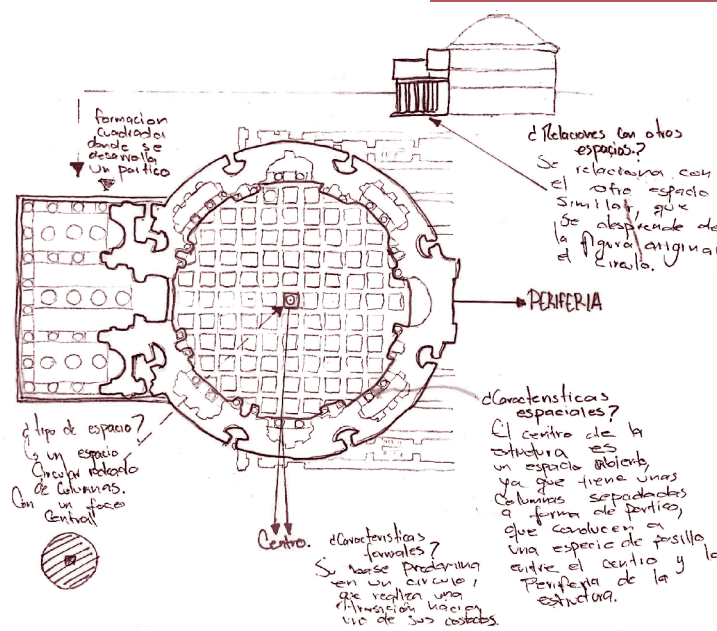 formacion
cuadrada
donde se
desarrolla
un portico
¿Relaciones con otros
espacios?
Se relaciona con
el otro espacio
similar, que
se desprende de
la figura original
el circulo.
PERIFERIA
¿tipo de espacio?
es un espacio
circular rodeado
de columnas.
Con un foco
Central
Centro.
¿Caracteristicas
formales?
Su base predomina
en un circulo,
que realiza una
transición hacia
uno de sus costados.
¿Caracteristicas
espaciales?
El centro de la
estructura es
un espacio abierto,
ya que tiene unas
columnas separadas
a forma de portico,
que conducen a
una especie de pasillo
entre el centro y la
Periferia de la
estructura.